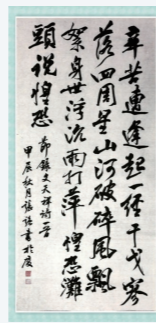 辛苦遭逢起一經干戈寥
落四周星山河破碎風飄
絮身世浮沉雨打萍惶恐灘
頭說惶恐
節錄文天祥詩一首
甲辰秋月